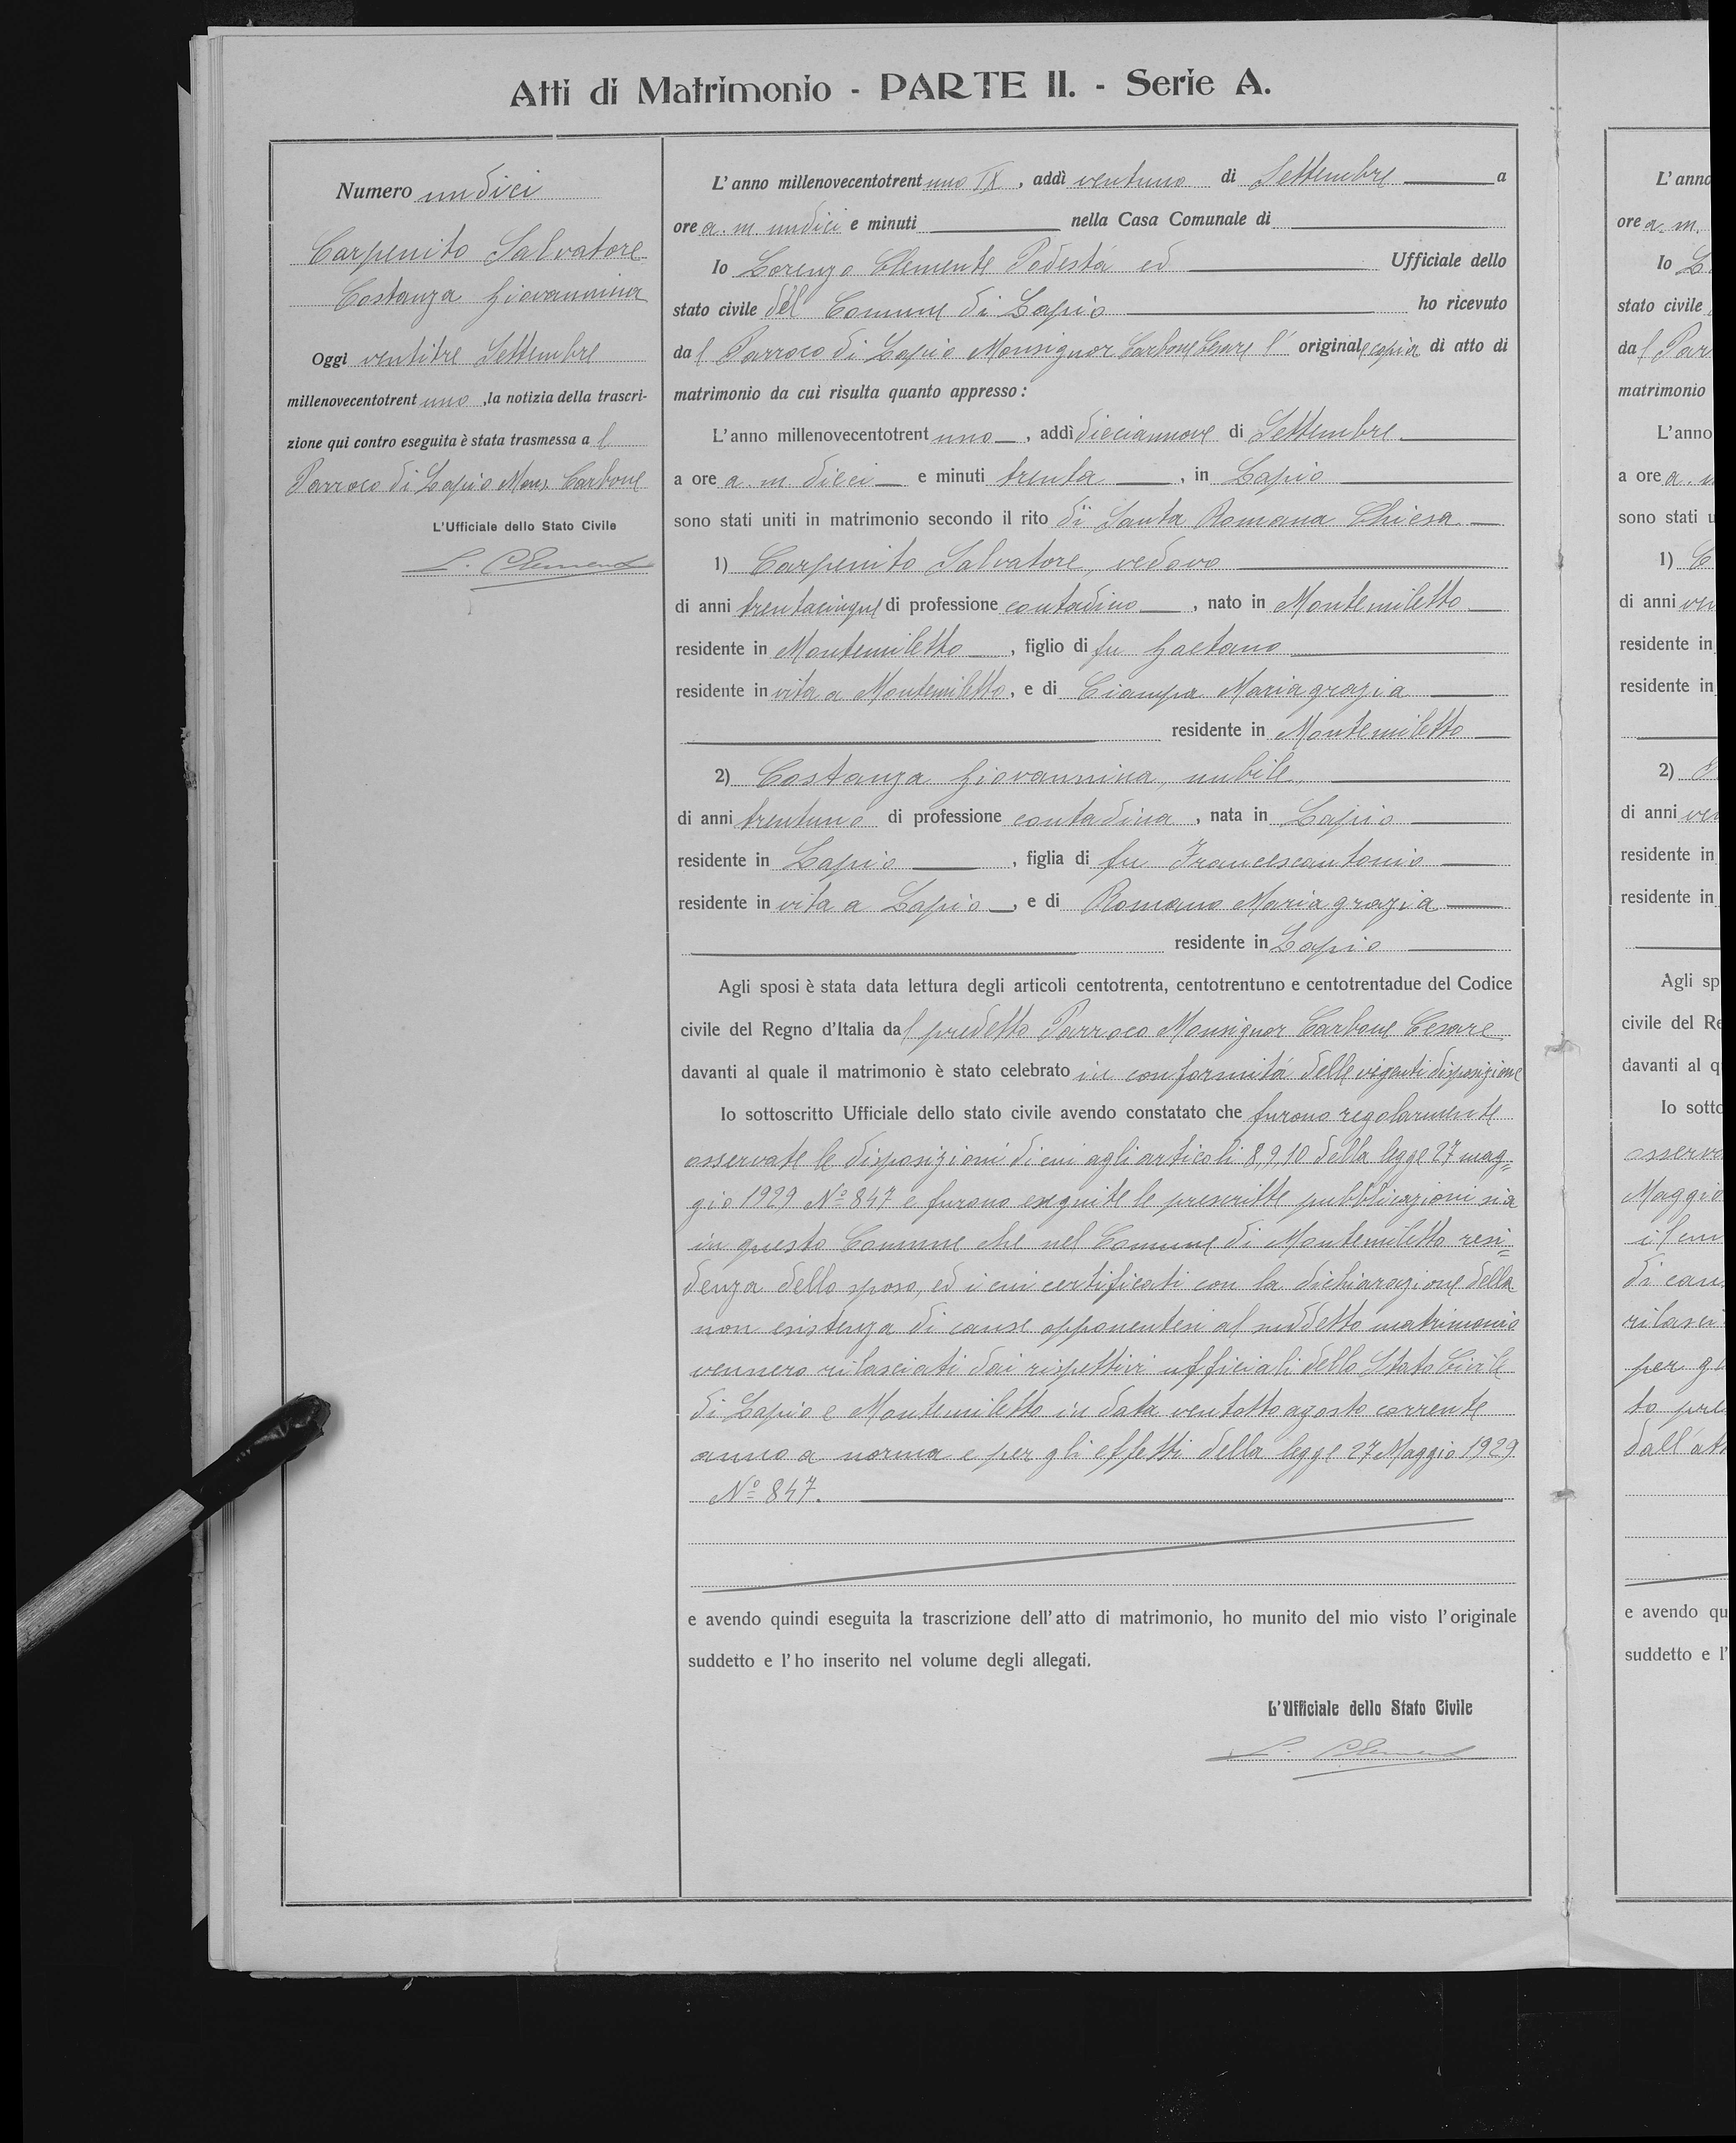 Atti di Matrimonio - PARTE II. - Serie A.
Numero undici
Carpenito Salvatore
Costanza Giovannina
Oggi ventitre Settembre
millenovecentotrent uno , la notizia della trascri-
zione qui contro eseguita è stata trasmessa a l
Parroco di Lapio Mons. Carbone
L'Ufficiale dello Stato Civile
L. Clemente
L'anno millenovecentotrent uno IX , addì ventuno di Settembre a
ore a. m undici e minuti nella Casa Comunale di
Io Lorenzo Clemente Podestá ed Ufficiale dello
stato civile del Comune di Lapio ho ricevuto
da l Parroco di Lapio Monsignor Carbone Cesare l' originale copia di atto di
matrimonio da cui risulta quanto appresso:
L'anno millenovecentotrent uno , addì diciannove di Settembre
a ore a. m dieci e minuti trenta , in Lapio
sono stati uniti in matrimonio secondo il rito di Santa Romana Chiesa
1) Carpenito Salvatore, vedovo
di anni trentacinque di professione contadino , nato in Montemiletto
residente in Montemiletto , figlio di fu Gaetano
residente in vita a Montemiletto, e di Ciampa Mariagrazia
residente in Montemiletto
2) Costanza Giovannina, nubile,
di anni trentuno di professione contadina , nata in Lapio
residente in Lapio , figlia di fu Francescantonio
residente in vita a Lapio , e di Romano Mariagrazia
residente in Lapio
Agli sposi è stata data lettura degli articoli centotrenta, centotrentuno e centotrentadue del Codice
civile del Regno d'Italia da l predetto Parroco Monsignor Carbone Cesare
davanti al quale il matrimonio è stato celebrato in conformitá delle vigenti disposizione
Io sottoscritto Ufficiale dello stato civile avendo constatato che furono regolarmente
osservate le disposizioni di cui agli articoli 8, 9, 10 della legge 27 mag=
gio 1929 Nº 847 e furono eseguite le prescritte pubblicazioni sia
in questo Comune che nel Comune di Montemiletto resi=
denza dello sposo, ed i cui certificati con la dichiarazione della
non esistenza di cause opponentesi al suddetto matrimonio
vennero rilasciati dai rispettivi ufficiali dello Stato Civile
di Lapio e Montemiletto in data ventotto agosto corrente
anno a norma e per gli effetti della legge 27 Maggio 1929
Nº 847.
e avendo quindi eseguita la trascrizione dell'atto di matrimonio, ho munito del mio visto l'originale
suddetto e l'ho inserito nel volume degli allegati.
L'Ufficiale dello Stato Civile
L. Clemente
L'anno
ore a. m.
Io L
stato civile
da l Par
matrimonio
L'anno
a ore a. m
sono stati u
1) C
di anni ven
residente in
residente in
2)
di anni ven
residente in
residente in
Agli sp
civile del Re
davanti al q
Io sotto
osserva
Maggio
di caus
rilasci
per gl
to pre
dall'att
e avendo qu
suddetto e l'